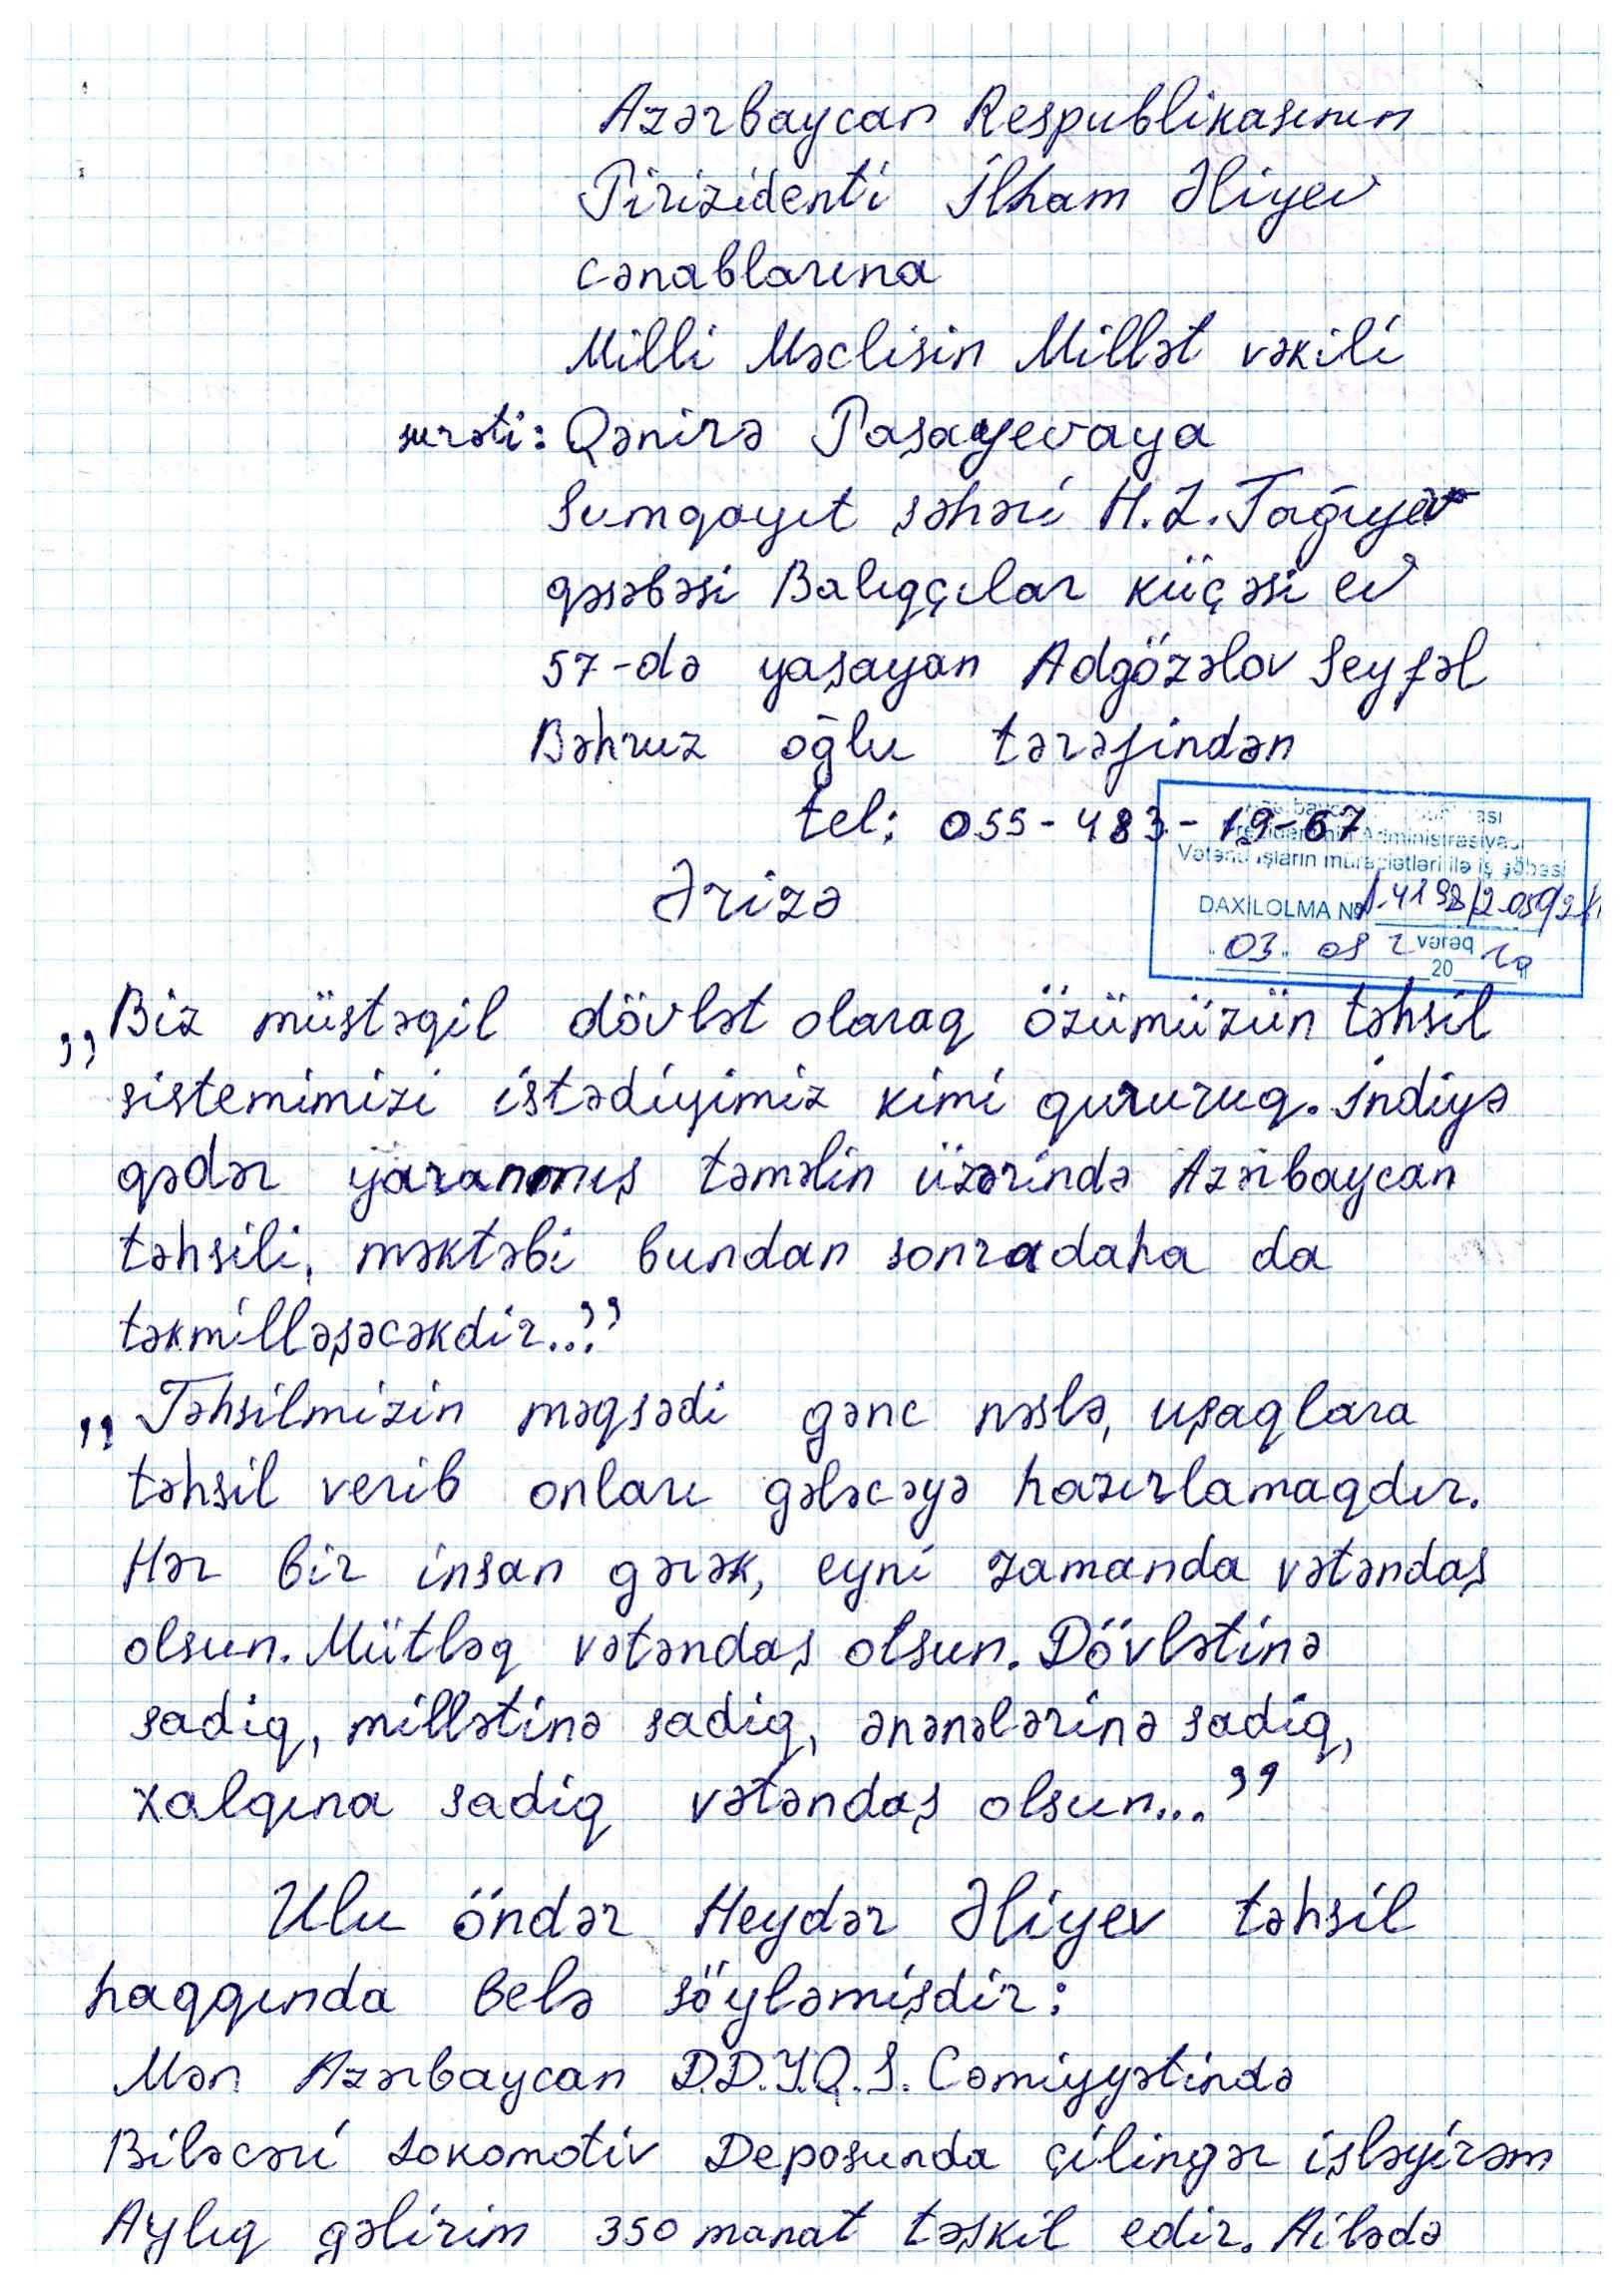 Azərbaycan Respublikasının
Pirizidenti İlham Əliyev
cənablarına
Milli Məclisin Millət vəkili
surəti: Qənirə Paşayevaya
Sumqayıt şəhəri H.Z.Tağıyev
qəsəbəsi Balıqçılar küçəsi ev
57-də yaşayan Adgözəlov Seyfəl
Bəhruz oğlu tərəfindən
tel: 055-483-19-67
Administrasiyası
Vətəndaşların müraciətləri ilə iş şöbəsi
DAXİLOLMA №
03. 08 2 vərəq
20
Ərizə
,,Biz müstəqil dövlət olaraq özümüzün təhsil
sistemimizi istədiyimiz kimi qururuq. İndiyə
qədər yaranmış təməlin üzərində Azərbaycan
təhsili, məktəbi bundan sonra daha da
təkmilləşəcəkdir...”
,,Təhsilmizin məqsədi gənc nəslə, uşaqlara
təhsil verib onları gələcəyə hazırlamaqdır.
Hər bir insan gərək, eyni zamanda vətəndaş
olsun. Mütləq vətəndaş olsun. Dövlətinə
sadiq, millətinə sadiq, ənənələrinə sadiq,
xalqına sadiq vətəndaş olsun...”
Ulu öndər Heydər Əliyev təhsil
haqqında belə söyləmişdir:
Mən Azərbaycan D.D.Y.Q.S. Cəmiyyətində
Biləcəri Lokomotiv Deposunda çilingər işləyirəm
Aylıq gəlirim 350 manat təşkil edir. Ailədə